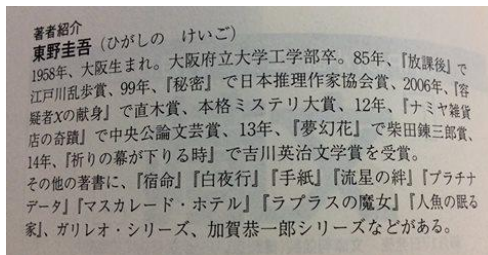 著者紹介
東野圭吾(ひがしの けいご)
1958年、大阪生まれ。大阪府立大学工学部卒。85年、『放課後』で
江戸川乱歩賞、99年、『秘密』で日本推理作家協会賞、2006年、『容
疑者Xの献身』で直木賞、本格ミステリ大賞、12年、『ナミヤ雑貨
店の奇蹟』で中央公論文芸賞、13年、『夢幻花』で柴田錬三郎賞、
14年、『祈りの幕が下りる時』で吉川英治文学賞を受賞。
その他の著書に、『宿命』『白夜行』『手紙』『流星の絆』『プラチナ
データ』『マスカレード・ホテル』『ラプラスの魔女』『人魚の眠る
家』、ガリレオ・シリーズ、加賀恭一郎シリーズなどがある。